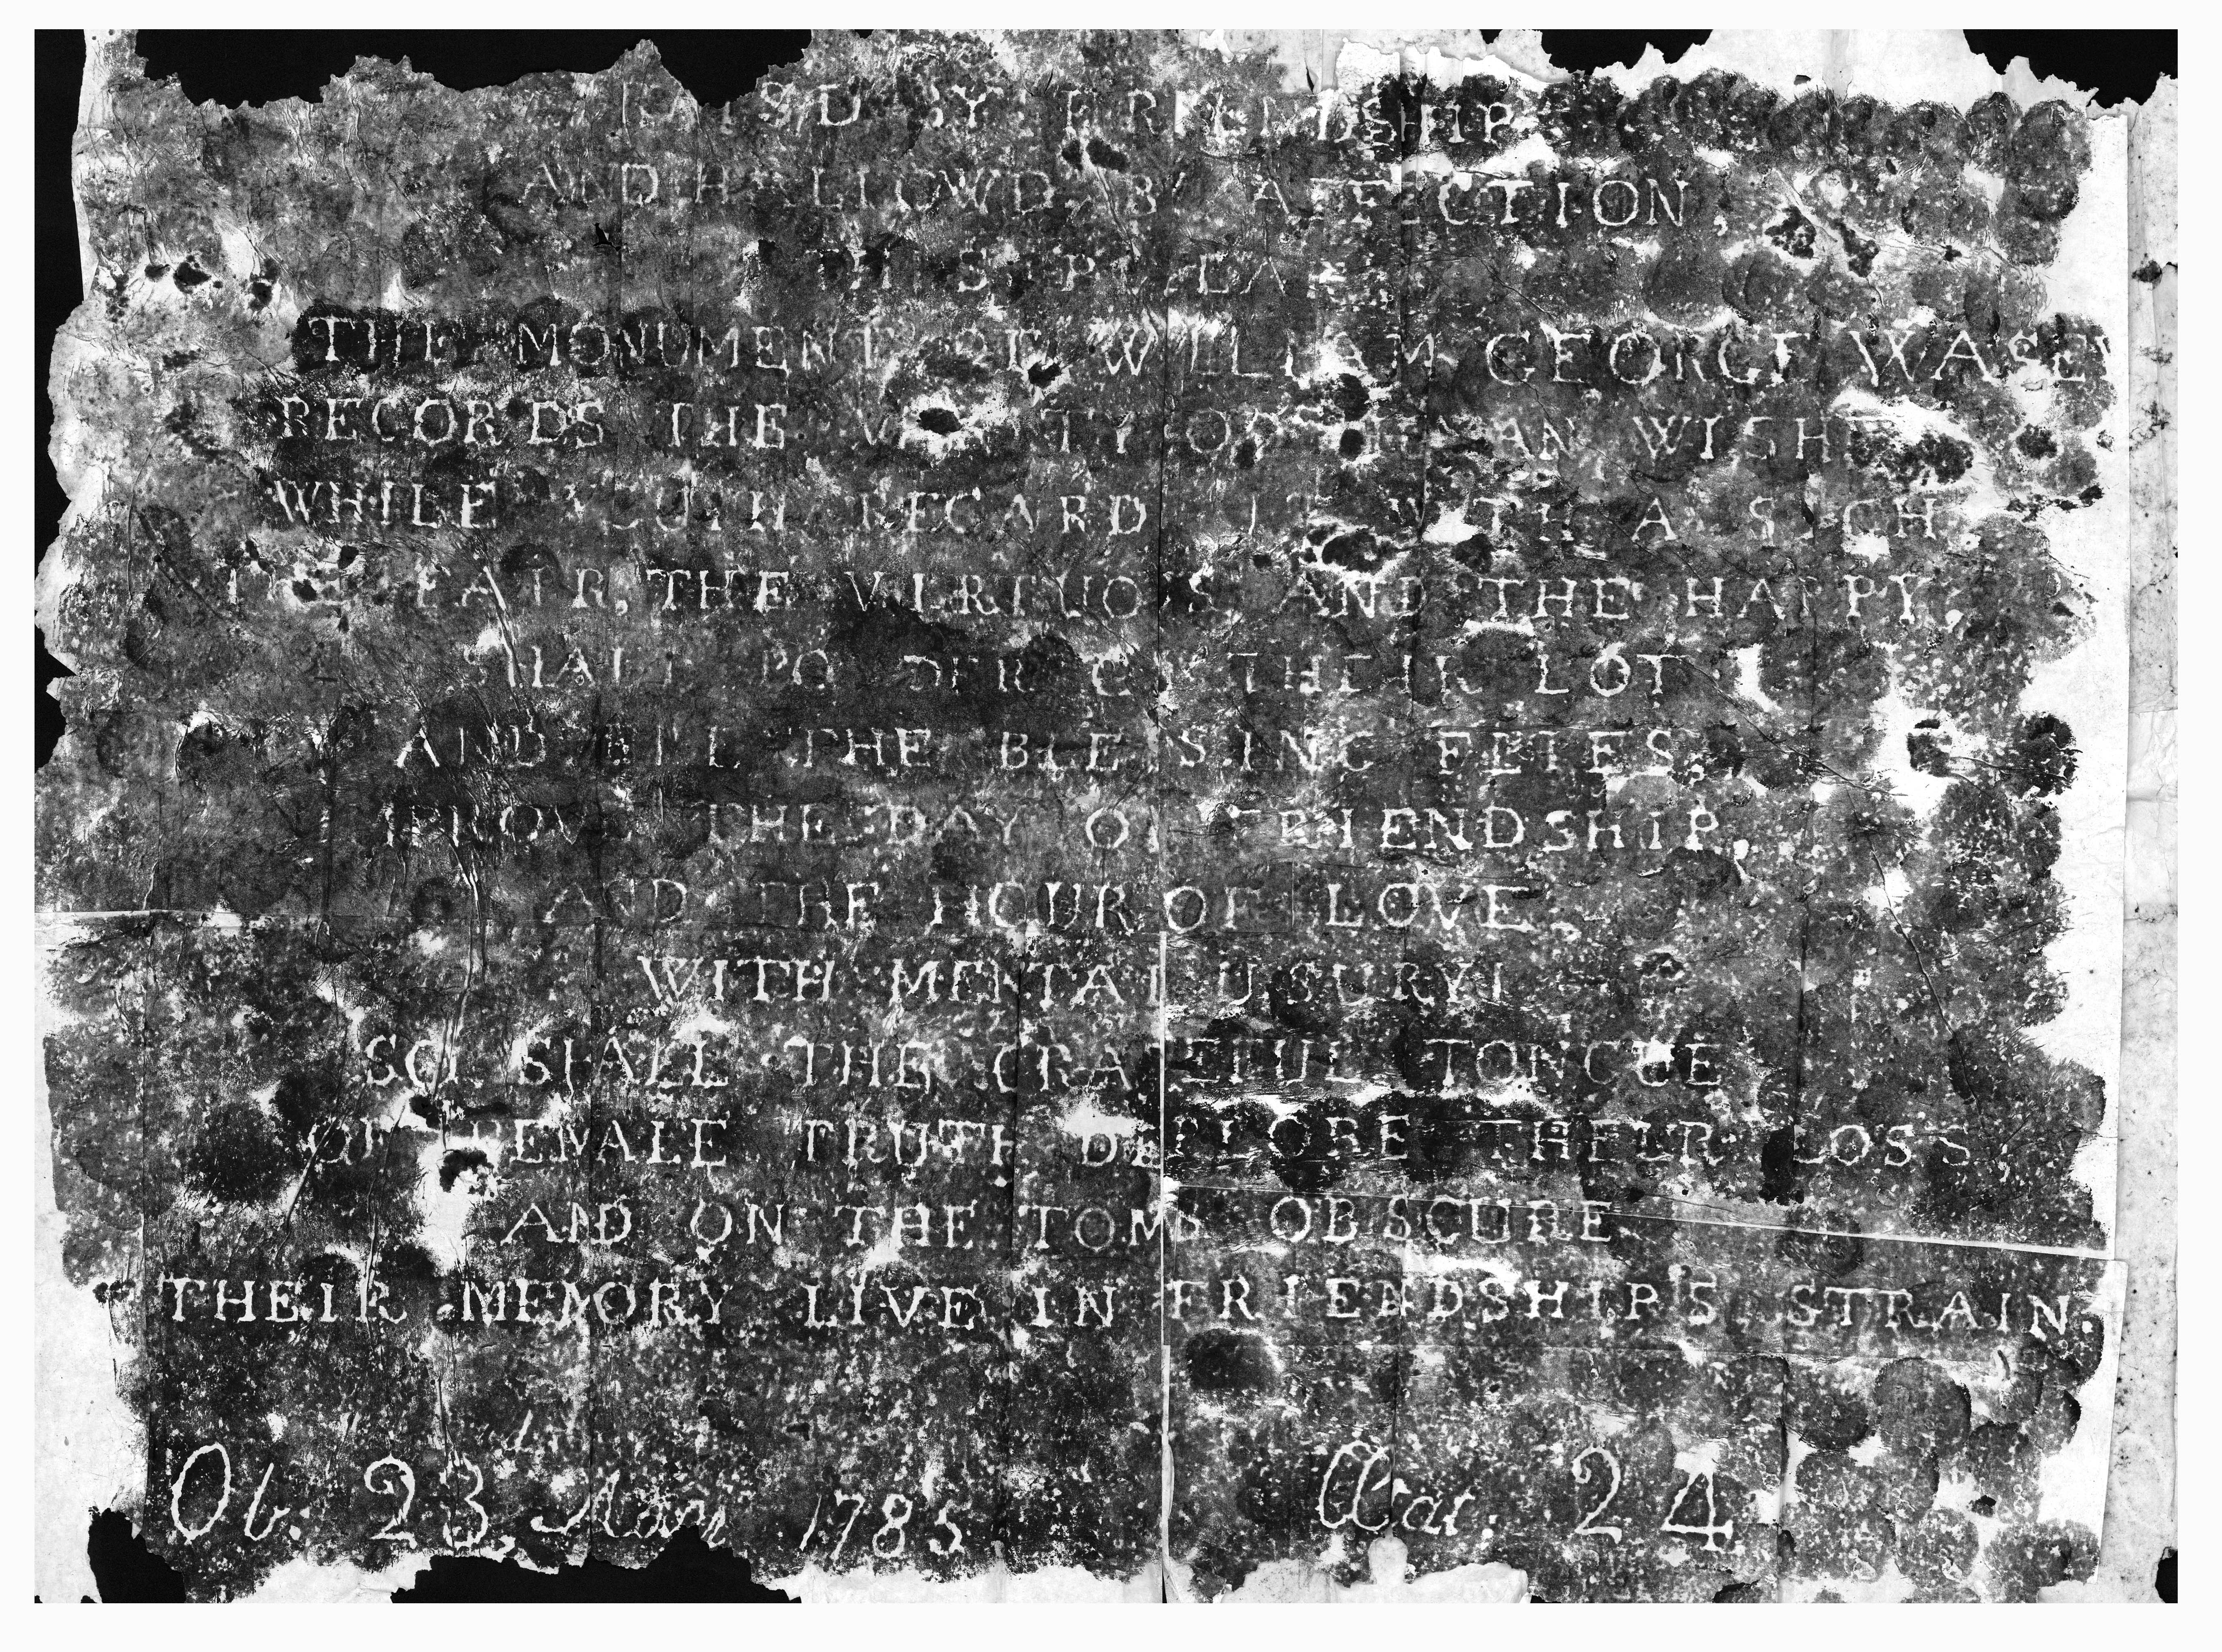 BY FRIENDSHIP
AND HALLOWD BY AFFECTION,
THIS
THE MONUMENT OF WILLIAM GEORGE
RECORDS THE VANITY OF HUMAN WISHES
WHILE YOUTH REGARDS IT WITH A SIGH
THE FAIR, THE VIRTUOUS AND THE HAPPY,
SHALL PONDER ON THEIR LOT
AND ERE THE BLESSING FLIES,
THE DAY OF FRIENDSHIP,
AND THE HOUR OF LOVE,
WITH MENTAL USURY!
SO SHALL THE GRATEFUL TONGUE
OF FEMALE TRUTH DEPLORE THEIR LOSS,
AND ON THE TOMBS OBSCURE
THEIR MEMORY LIVE IN FRIENDSHIP'S STRAIN.
Ob. 23, 1785 Ætat. 24